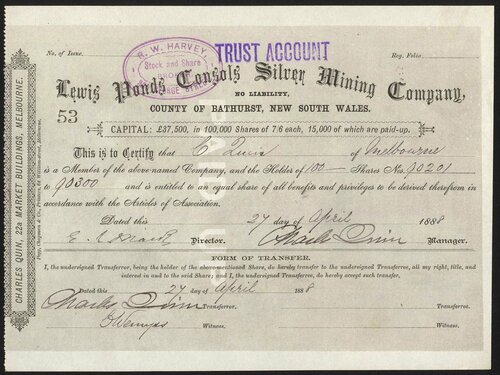 No. of Issue
R. W. HARVEY
Stock and Share
BROKER
TRUST ACCOUNT
Reg. Folio
Lewis Ponds Consols Silver Mining Company,
NO LIABILITY,
53
COUNTY OF BATHURST, NEW SOUTH WALES.
CAPITAL: £37,500, in 100,000 Shares of 7/6 each, 15,000 of which are paid-up.
This is to Certify that C Quin of Melbourne
is a Member of the above-named Company, and the Holder of 100 Shares No. 90201
to 90300 and is entitled to an equal share of all benefits and privileges to be derived therefrom in
accordance with the Articles of Association.
Dated this 27 day of April 1888
Director. Charles Quin Manager.
FORM OF TRANSFER.
I, the undersigned Transferror, being the holder of the above-mentioned Share, do hereby transfer to the undersigned Transferree, all my right, title, and
interest in and to the said Share; and I, the undersigned Transferree, do hereby accept such transfer.
Dated this 27 day of April 1888
Charles Quin Transferror. Transferree.
Witness. Witness.
CHARLES QUIN, 22A MARKET BUILDINGS, MELBOURNE.